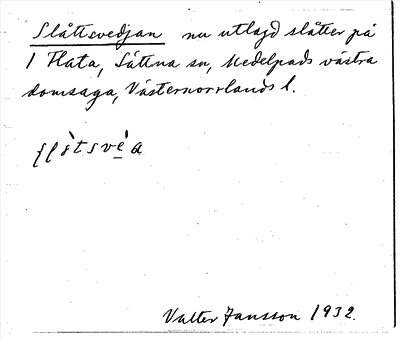 Slåttsvedjan nu utlagd slåtter på
1 Flata, Sättna sn, Medelpads västra
domsaga, Västernorrlands l.
Valter Jansson 1932.